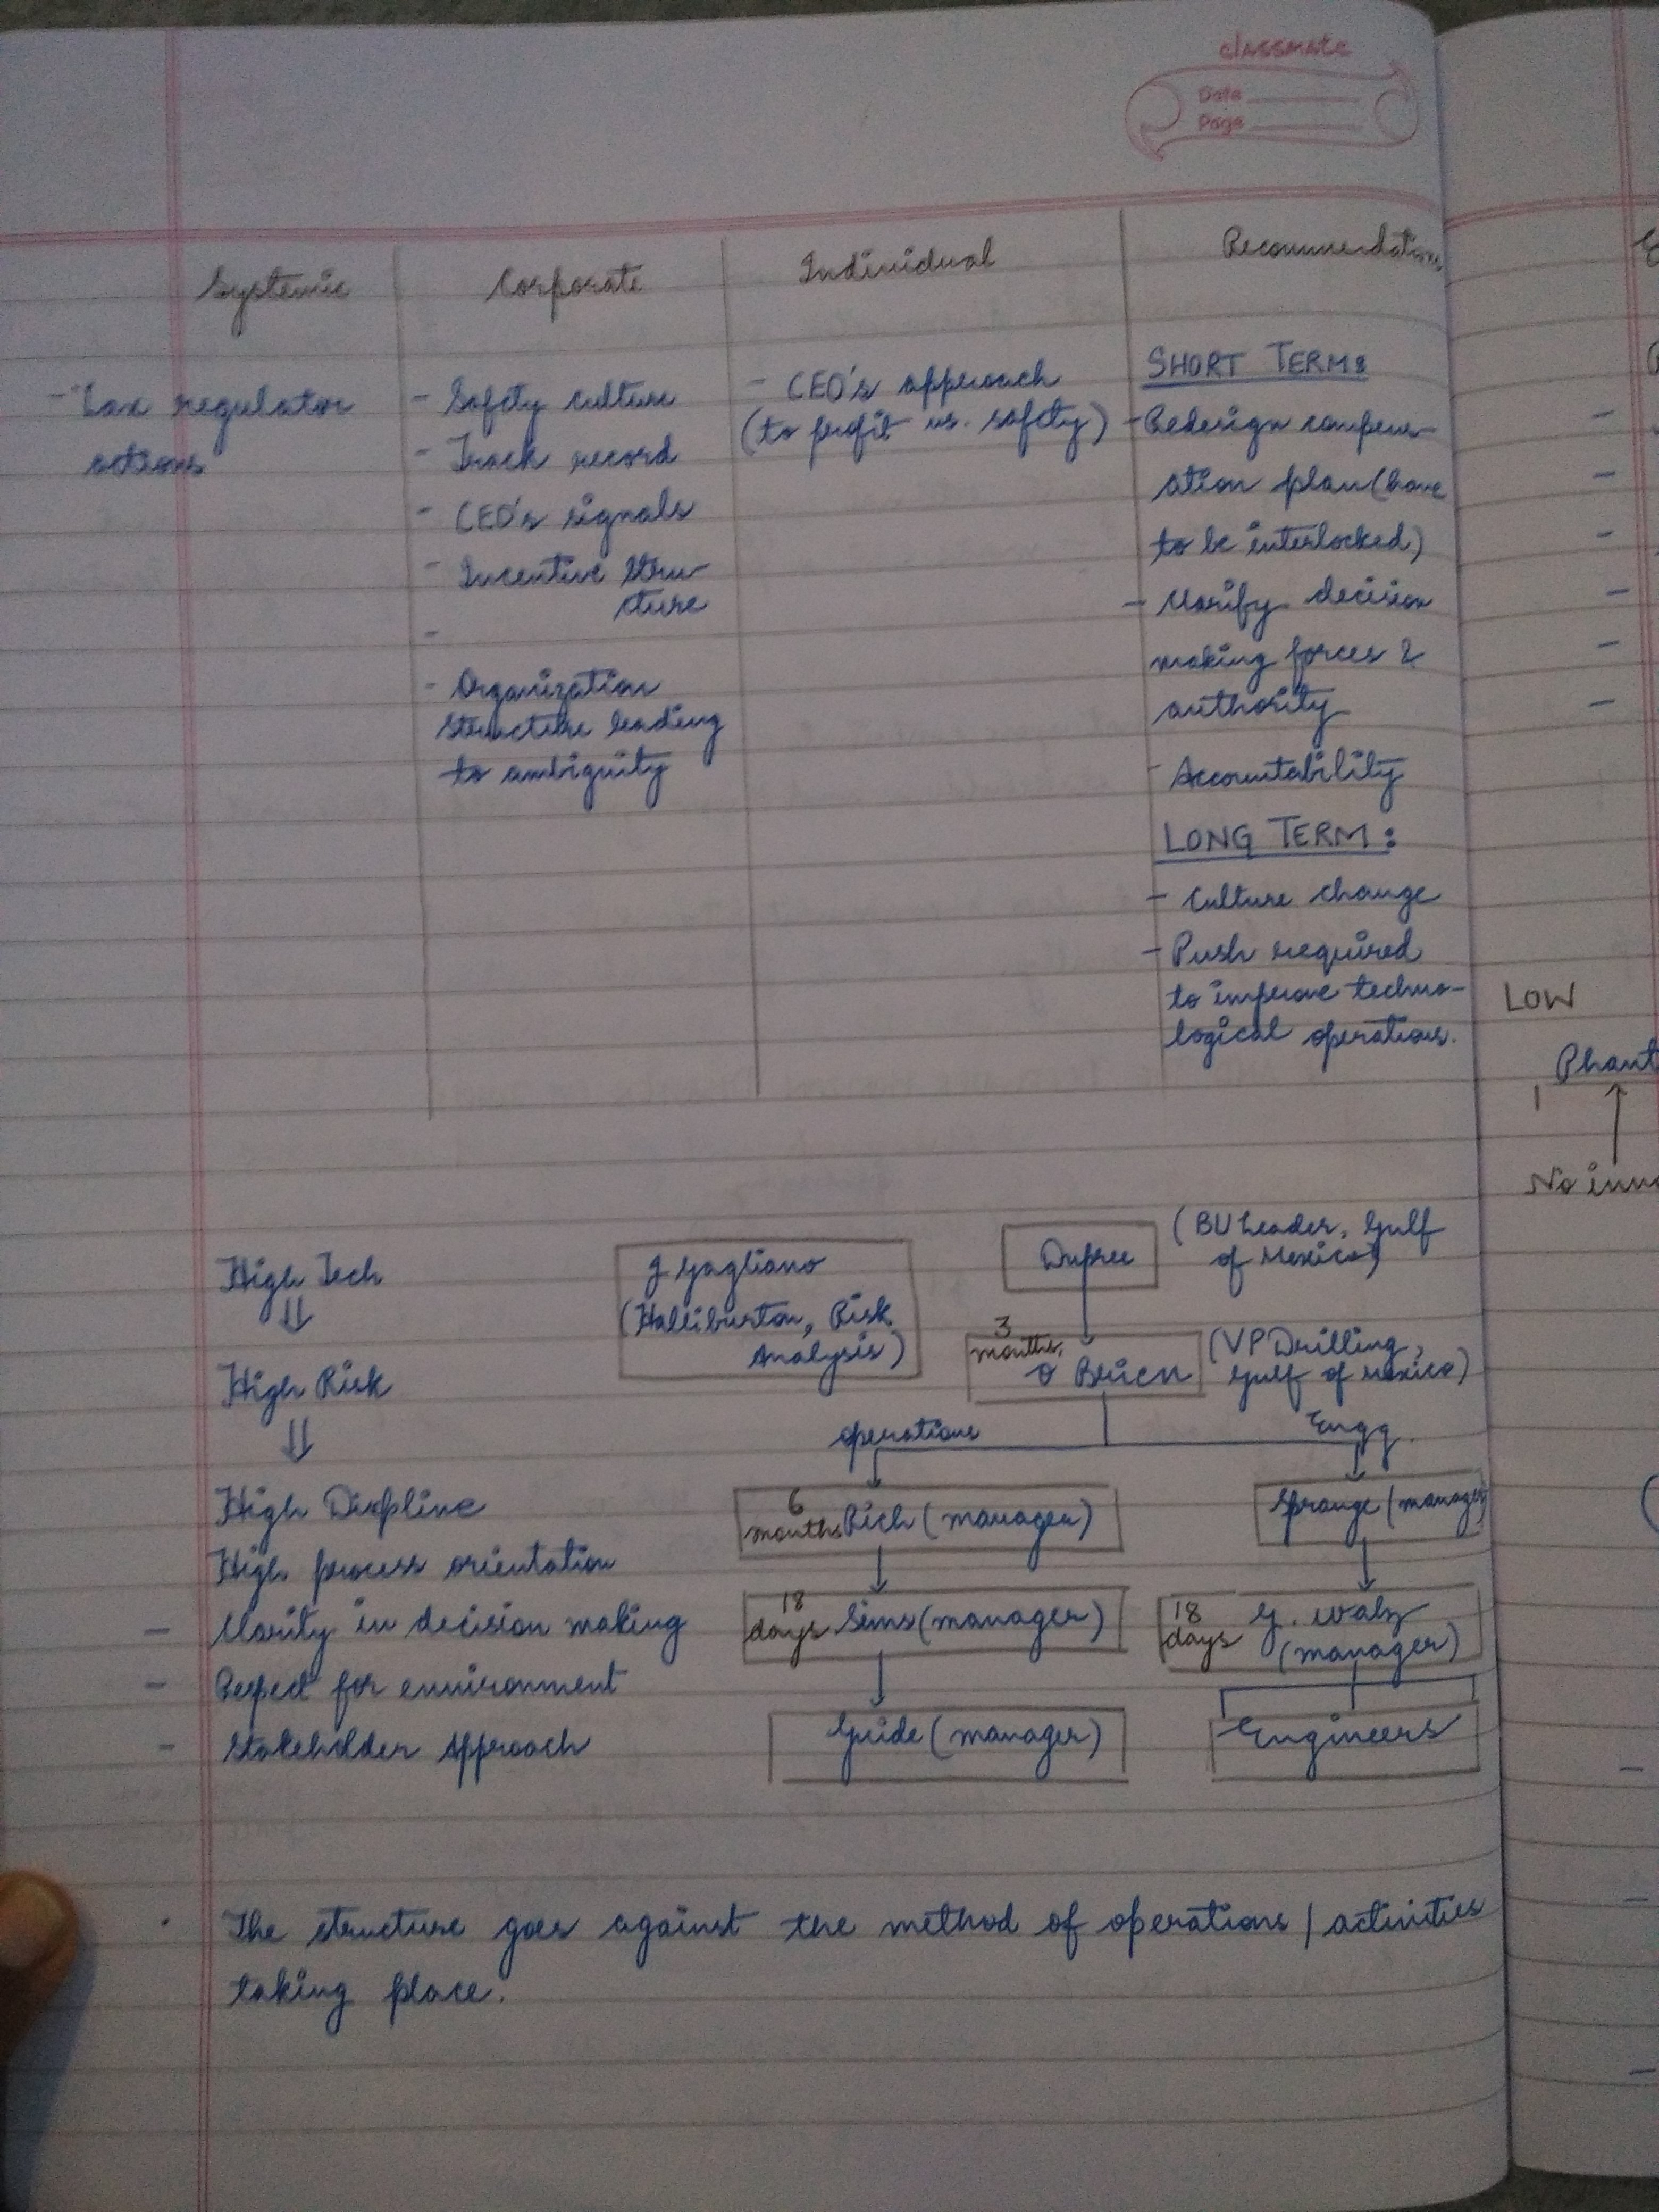 classmate
Date
Page
Systemic
Corporate
Individual
Recommendations
- Lax regulator
actions
- Safety culture
- Track record
- CEO's signals
- Incentive Stru-
cture
-
- Organization
structure leading
to ambiguity
- CEO's approach
(to profit vs. safety)
SHORT TERM:
- Redesign compens-
ation plan (have
to be interlocked)
- Clarify decision
making forces &
authority
- Accountability
LONG TERM:
- Culture change
- Push required
to improve techno-
logical operations.
High Tech
⇓
High Risk
⇓
High Displine
High process orientation
- Clarity in decision making
- Respect for environment
- Stakeholder Approach
J Gagliano
(Halliburton, Risk
Analysis)
Dupree
(BU Leader, Gulf
of Mexico)
3
months,
O Brien
(VP Drilling,
Gulf of Mexico)
operations
Engg.
6
months Rich (manager)
Sprauge (manager)
18
days Sims (manager)
18
days G. Walz
(manager)
Guide (manager)
Engineers
. The structure goes against the method of operations / activities
taking place.
LOW
1